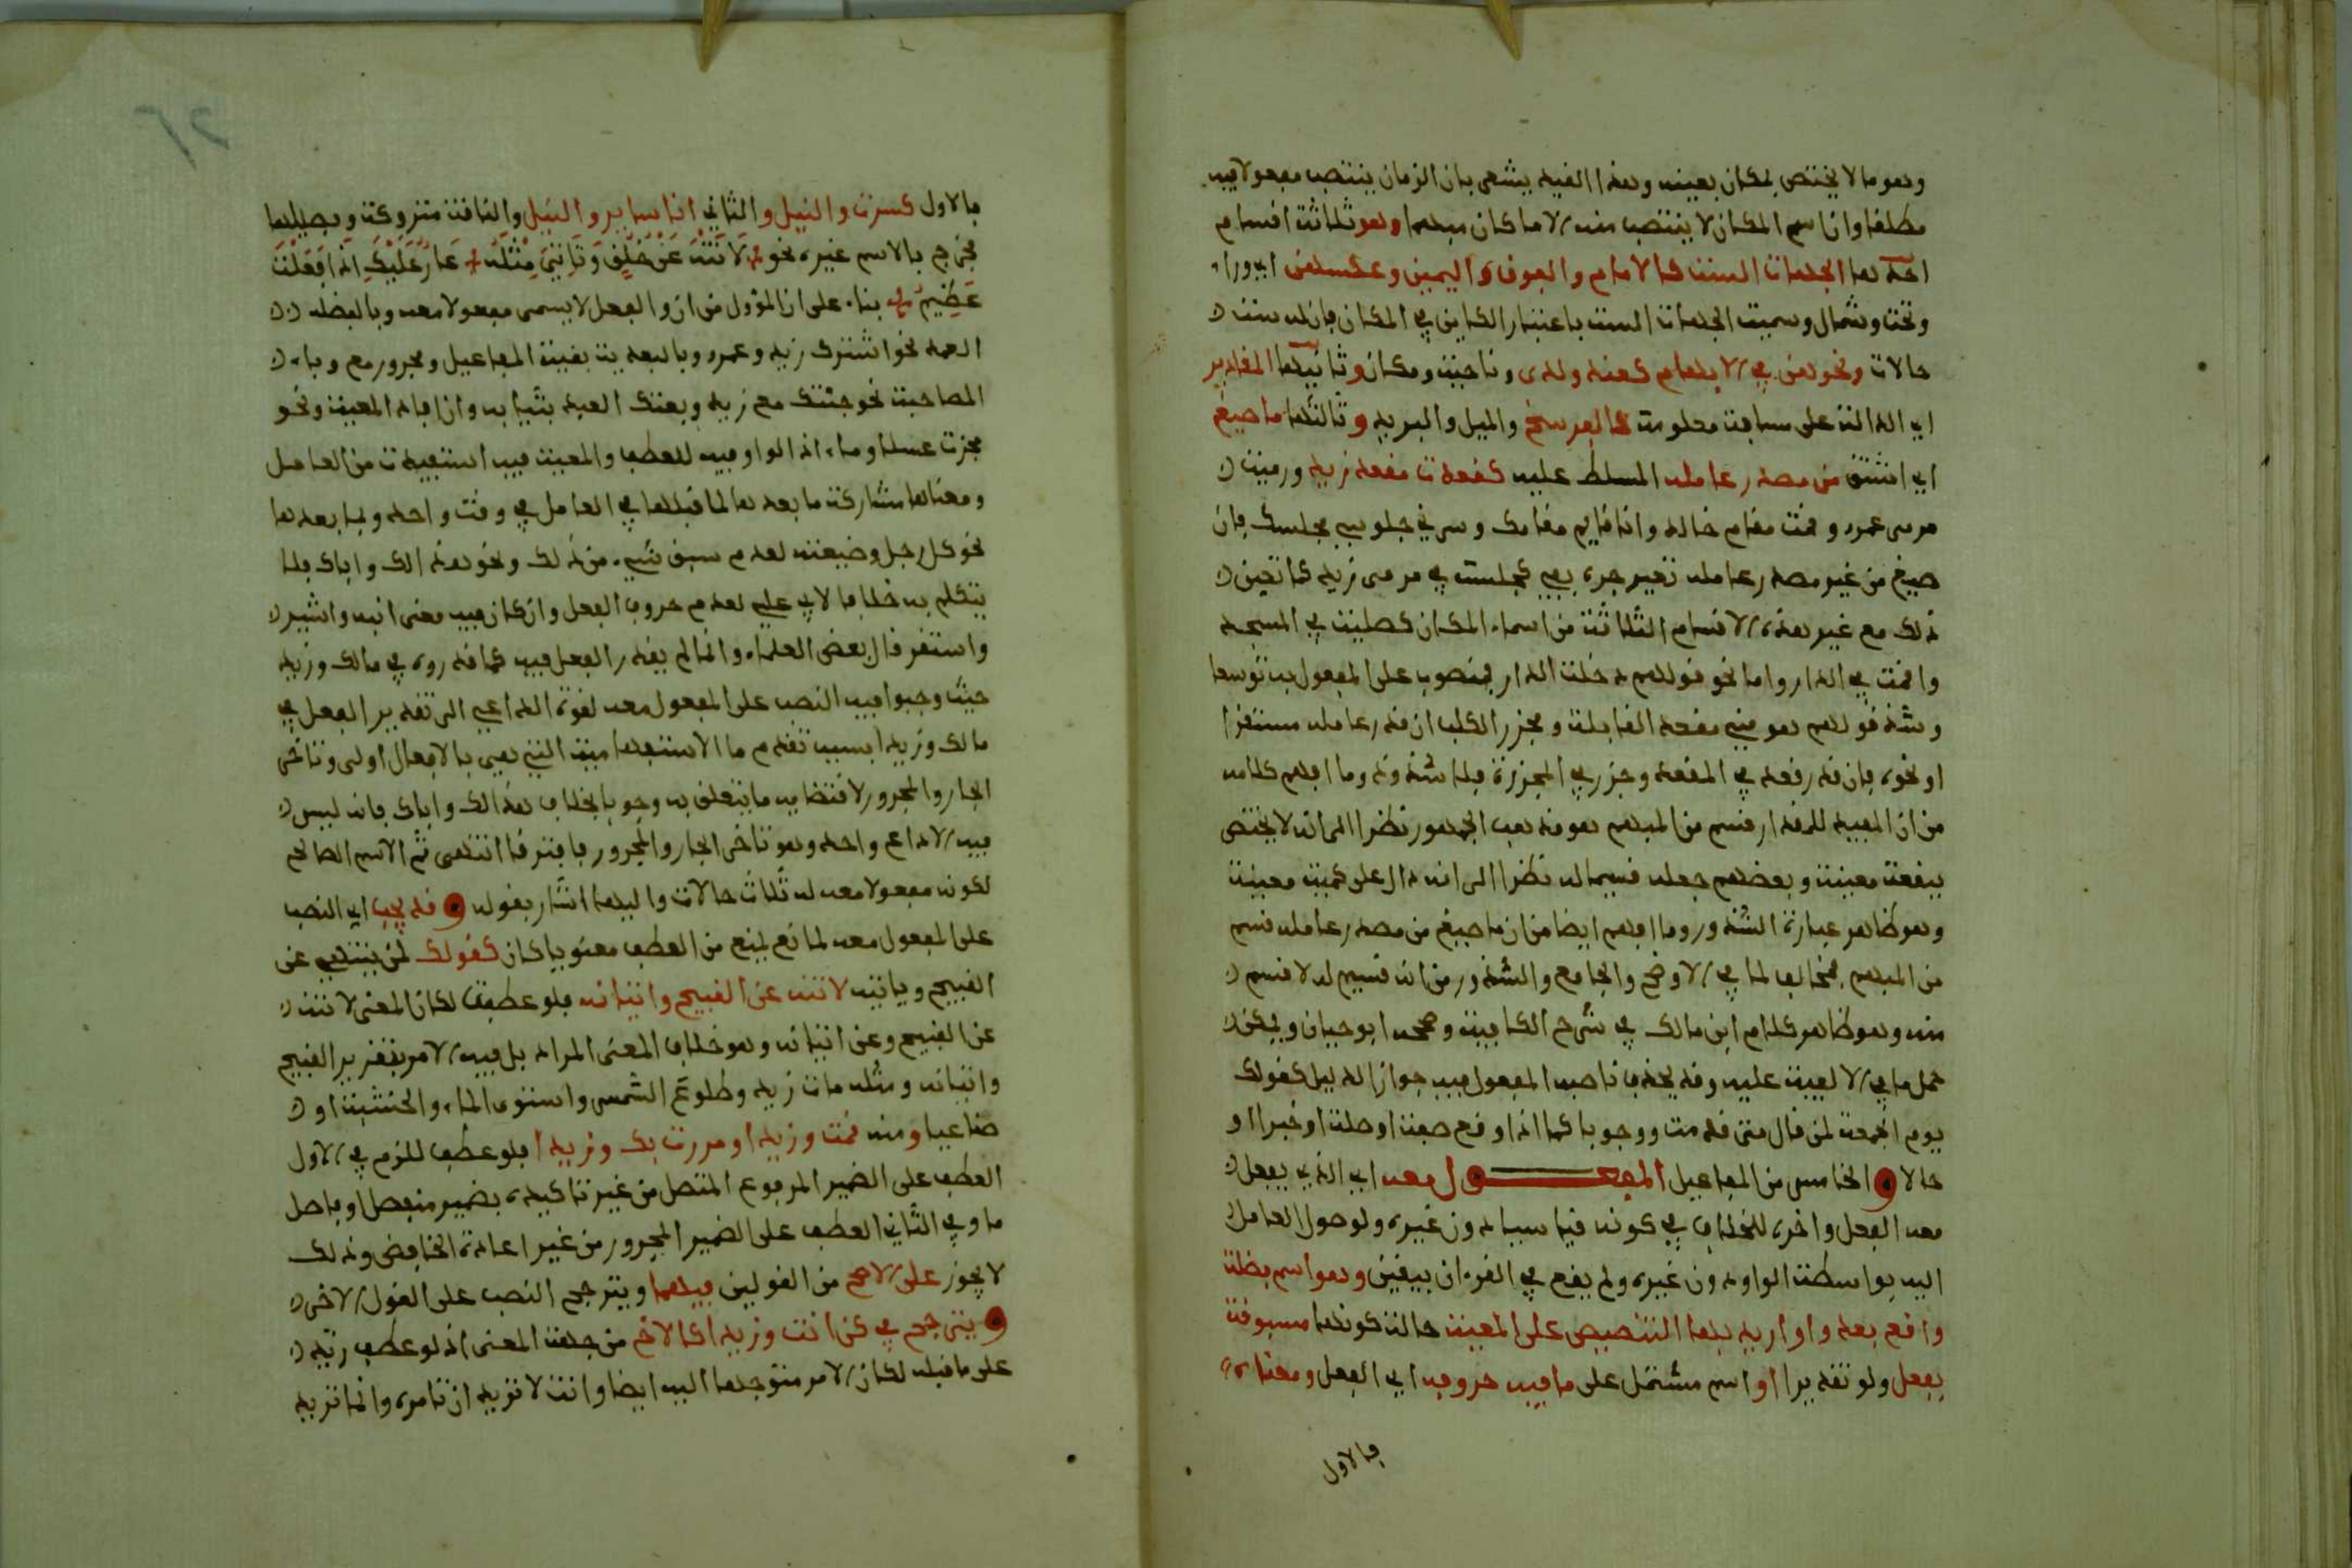 وهو ما لا يختص بمكان بعينه وهذا القيد يشعر بان الزمان ينتصب مفعولا فيه
مطلقا وان اسم المكان لا ينتصب منه الا ما كان مبهما وهو ثلاثة اقسام
احدها الجهات الست كالامام والفوق واليمين وعكسهن اي وراء
وتحت وشمال وسميت الجهات الست باعتبار الكاين في المكان فان له ست
حالات ونحوهن في الابهام كعند ولدى وناحية ومكان وثانيها المقادير
اي الدالة على مسافة معلومة كالفرسخ والميل والبريد وثالثها ما صيغ
اي اشتق من مصدر عامله المسلط عليه كقعدت مقعد زيد ورميت
مرمى عمرو وقمت مقام خالد وانا قايم مقامك وسرني جلوسي مجلسك فان
صيغ من غير مصدر عامله تعين جره بفي كجلست في مرمى زيد كما تعين
ذلك مع غير هذه الاقسام الثلاثة من اسماء المكان كصليت في المسجد
واقمت في الدار واما نحو قولهم دخلت الدار فمنصوب على المفعول به توسعا
وشذ قولهم هو مني مقعد القابلة ومجزر الكلب ان قدر عامله مستقرا
او نحوه فان قدر قعد في المقعد وجزر في المجزرة فلا شذوذ وما افهم كلامه
من ان المفيد للمقدار قسم من المبهم هو مذهب الجمهور نظرا الى انه لا يختص
ببقعة معينة وبعضهم جعله قسيما له نظرا الى انه دال على كمية معينة
وهو ظاهر عبارة الشذور وما افهم ايضا من ان ما صيغ من مصدر عامله قسم
من المبهم مخالف لما في الاوضح والجامع والشذور من انه قسيم له لا قسم
منه وهو ظاهر كلام ابن مالك في شرح الكافية وصححه ابو حيان ويمكن
حمل ما في الالفية عليه وقد يحذف ناصب المفعول فيه جوازا لدليل كقولك
يوم الجمعة لمن قال متى قدمت ووجوبا كما اذا وقع صفة او صلة او خبرا او
حالا و الخامس من المفاعيل المفعول معه اي الذي يفعل
معه الفعل واخره للخلاف في كونه قياسيا دون غيره ولوصول العامل
اليه بواسطة الواو دون غيره ولم يقع في القرءان بيقين وهو اسم فضلة
واقع بعد واو اريد بها التنصيص على المعية حالة كونها مسبوقة
بفعل ولو تقديرا او اسم مشتمل على ما فيه حروفه اي الفعل ومعناه
فالاول
فالاول كسرت والنيل والثاني انا ساير والنيل والناقة متروكة وفصيلها
فخرج بالاسم غيره نحو لَا تَنْهَ عَنْ خُلُقٍ وَتَأْتِيَ مِثْلَهُ عَارٌ عَلَيْكَ اِذَا فَعَلْتَ
عَظِيمُ بناء على ان المؤول من ان والفعل لا يسمى مفعولا معه وبالفضلة
العمدة نحو اشترك زيد وعمرو وبالبعدية بقية المفاعيل ومجرور مع وباء
المصاحبة نحو جئتك مع زيد وبعتك العبد بثيابه وان افاد المعية ونحو
مزجت عسلا وماء اذ الواو فيه للعطف والمعية فيه استفيدت من العامل
ومعناها مشاركة ما بعدها لما قبلها في العامل في وقت واحد وبما بعدها
نحو كل رجل وضيعته لعدم سبق شيء من ذلك ونحو هذا لك واباك فلا
يتكلم به خلافا لابي علي لعدم حروف الفعل وان كان فيه معنى انبه واشير
واستقر قال بعض العلماء وانما لم يقدر الفعل فيه كما قدروه في مالك وزيدا
حيث وجبوا فيه النصب على المفعول معه لقوة الداعي الى تقدير الفعل في
مالك وزيدا بسبب تقدم ما الاستفهامية التي هي بالافعال اولى وتاخر
الجار والمجرور لاقتضايه ما يتعلق به وجوبا بخلاف هذا لك واباك فانه ليس
فيه الا داع واحد وهو تاخر الجار والمجرور فافترقا انتهى ثم الاسم الصالح
لكونه مفعولا معه له ثلاث حالات واليها اشار بقوله و قد يجب اي النصب
على المفعول معه لمانع يمنع من العطف معنويا كان كقولك لمن ينهى عن
القبيح وياتيه لا تنه عن القبيح واتيانه فلو عطفت لكان المعنى لا تنه
عن القبيح وعن اتيانه وهو خلاف المعنى المراد بل فيه الامر بتقرير القبيح
واتيانه ومثله مات زيد وطلوع الشمس واستوى الماء والخشبة او
صناعيا ومنه قمت وزيدا ومررت بك وزيدا فلو عطف للزم في الاول
العطف على الضمير المرفوع المتصل من غير تاكيده بضمير منفصل او فاصل
ما وفي الثاني العطف على الضمير المجرور من غير اعادة الخافض وذلك
لا يجوز على الاصح من القولين فيهما ويترجح النصب على القول الاخر
و يترجح في كن انت وزيدا كالاخ من جهة المعنى اذ لو عطف زيد
على ما قبله لكان الامر متوجها اليه ايضا وانت لا تريد ان تامره وانما تريد